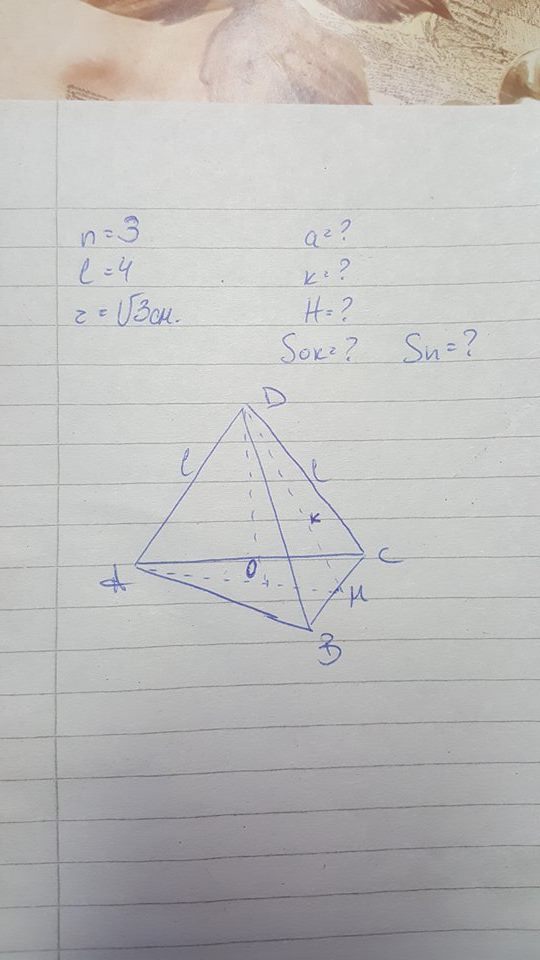 n = 3 a = ?
l = 4 k = ?
r = √3 см. H = ?
Sок = ? Sп = ?
D
l l
k
A O C
H
B